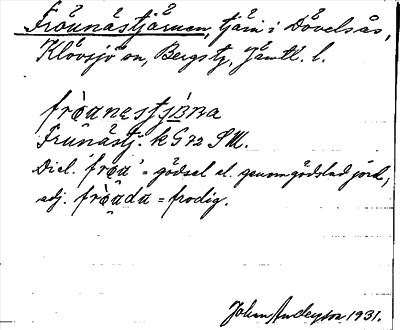 Frönnåstjärnen, tjärn i Dövelsås,
Klövsjö sn, Bergs tg, Jämtl. l.
fròanestjɛ̈rna
Frunåstj. k G 72 SM.
Dial. 'fròa' = gödsel el. genomgödslad jord,
adj. fròada = frodig.
Johan Anderson 1931.